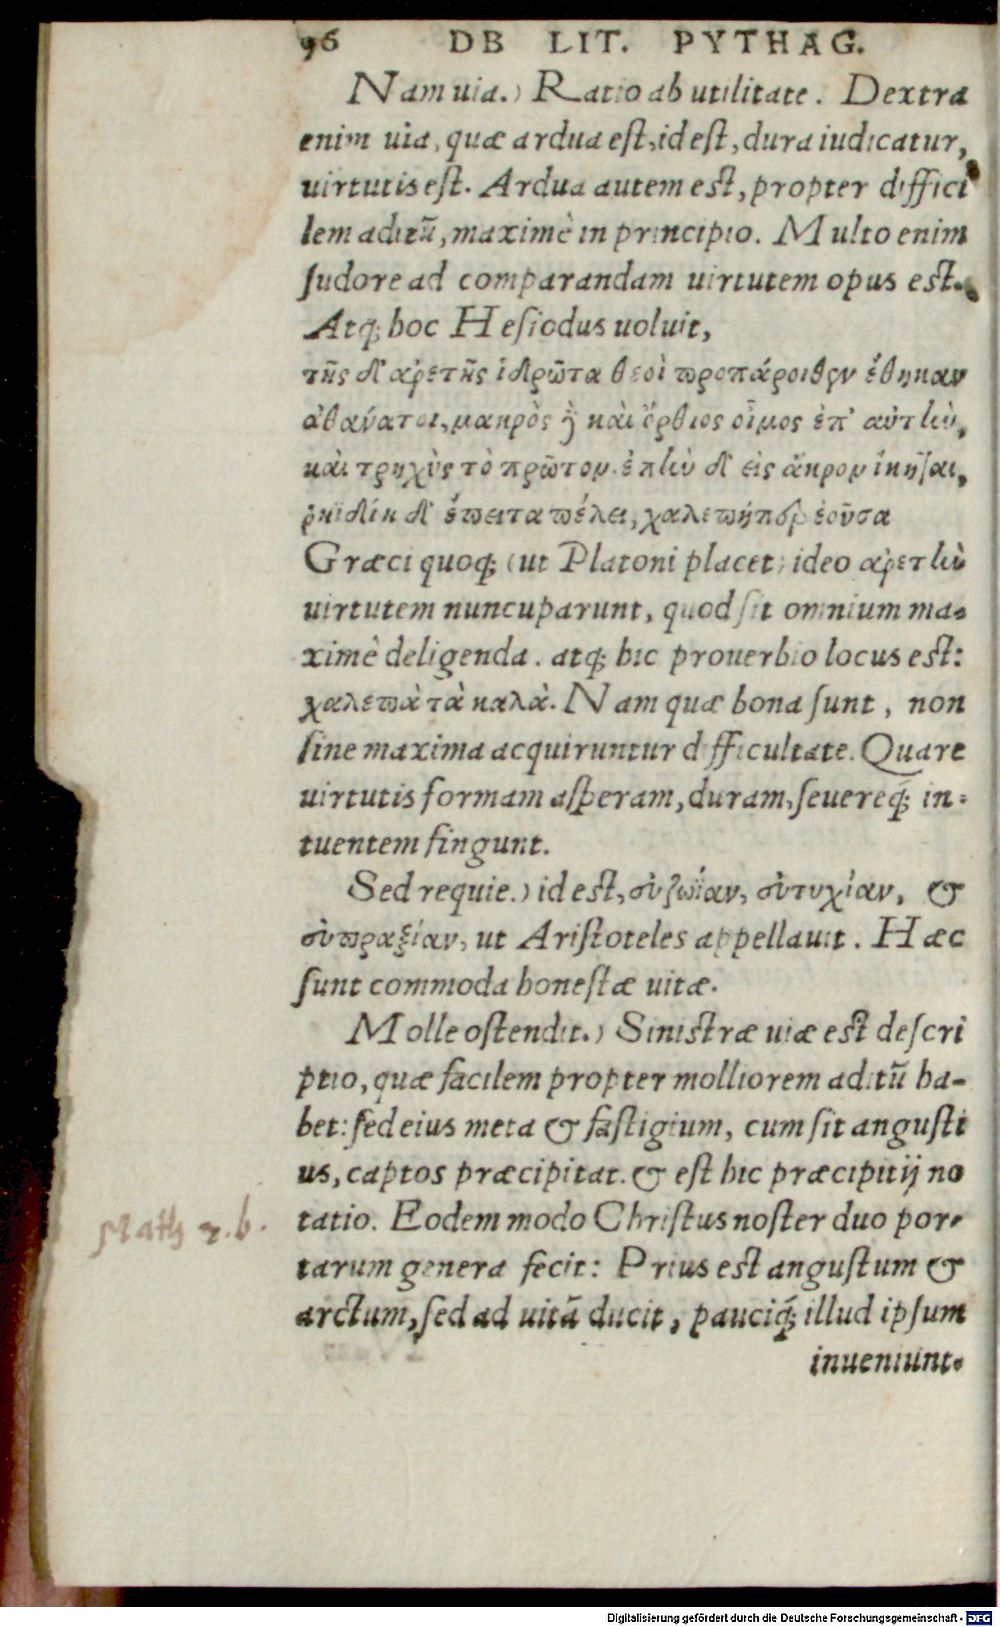 96 DE LIT. PYTHAG.
Nam uia.) Ratio ab utilitate. Dextra
enim uia, quæ ardua est, id est, dura iudicatur,
uirtutis est. Ardua autem est, propter diffici
lem aditũ, maximè in principio. Multo enim
sudore ad comparandam uirtutem opus est.
Atq; hoc Hesiodus uoluit,
τῆς δ' ἀρετῆς ἱδρῶτα θεοὶ προπάροιθεν ἔθηκαν
ἀθάνατοι, μακρὸς ἢ καὶ ὄρθιος οἶμος ἐπ' αὐτὴν,
καὶ τρηχὺς τὸ πρῶτον. ἐπὴν δ' εἰς ἄκρον ἵκηται,
ῥηϊδίη δ' ἔπειτα πέλει, χαλεπήπερ ἐοῦσα
Græci quoq; (ut Platoni placet) ideo ἀρετὴν
uirtutem nuncuparunt, quod sit omnium ma-
ximè deligenda. atq; hic prouerbio locus est:
χαλεπὰ τὰ καλὰ. Nam quæ bona sunt, non
sine maxima acquiruntur difficultate. Quare
uirtutis formam asperam, duram, seuereq́; in-
tuentem fingunt.
Sed requie.) id est, σὐζωΐαν, σὐτυχίαν, &
σὐπραξίαν, ut Aristoteles appellauit. Hæc
sunt commoda honestæ uitæ.
Molle ostendit.) Sinistræ uiæ est descri
ptio, quæ facilem propter molliorem aditũ ha-
bet: sed eius meta & fastigium, cum sit angusti
us, captos præcipitat. & est hic præcipitij no
tatio. Eodem modo Christus noster duo por-
tarum genera fecit: Prius est angustum &
arctum, sed ad uitã ducit, pauciq́; illud ipsum
inueniunt.
Math 7. b.
Digitalisierung gefördert durch die Deutsche Forschungsgemeinschaft - DFG